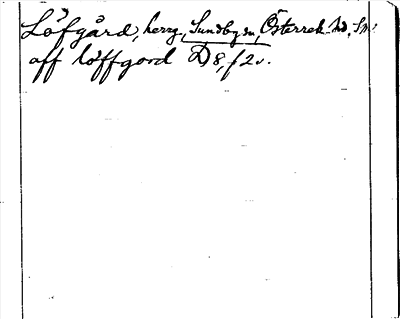 Löfgård, herrg., Sundby sn, Österrek. hd, Sm.
aff löffgord D 8, f 2 v.